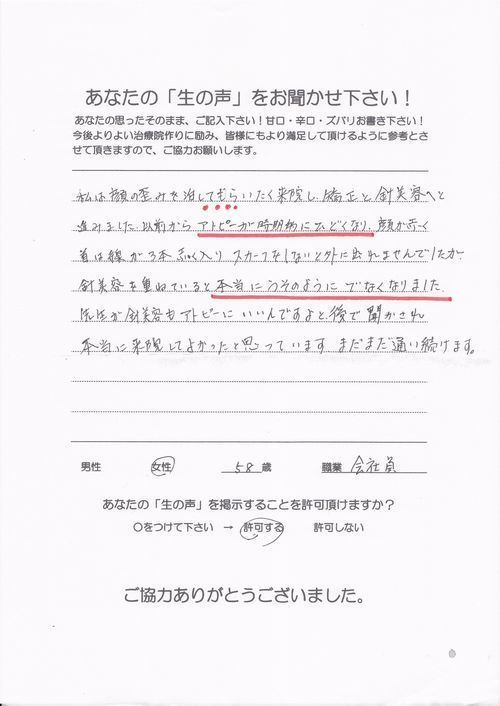 あなたの「生の声」をお聞かせ下さい！
あなたの思ったそのまま、ご記入下さい！甘口・辛口・ズバリお書き下さい！
今後よりよい治療院作りに励み、皆様にもより満足して頂けるように参考とさ
せて頂きますので、ご協力お願いします。
私は顔の歪みを治してもらいたく来院し、矯正と針美容へと
進みました。以前からアトピーが時期柄にひどくなり、顔が赤く
首は線が3本赤く入りスカーフをしないと外に出れませんでしたが、
針美容を重ねていると本当にうそのようにでなくなりました。
先生が針美容もアトピーにいいんですよと、後で聞かされ
本当に来院してよかったと思っています。まだまだ通い続けます。
男性 女性 58歳 職業 会社員
あなたの「生の声」を掲示することを許可頂けますか？
〇をつけて下さい → 許可する 許可しない
ご協力ありがとうございました。